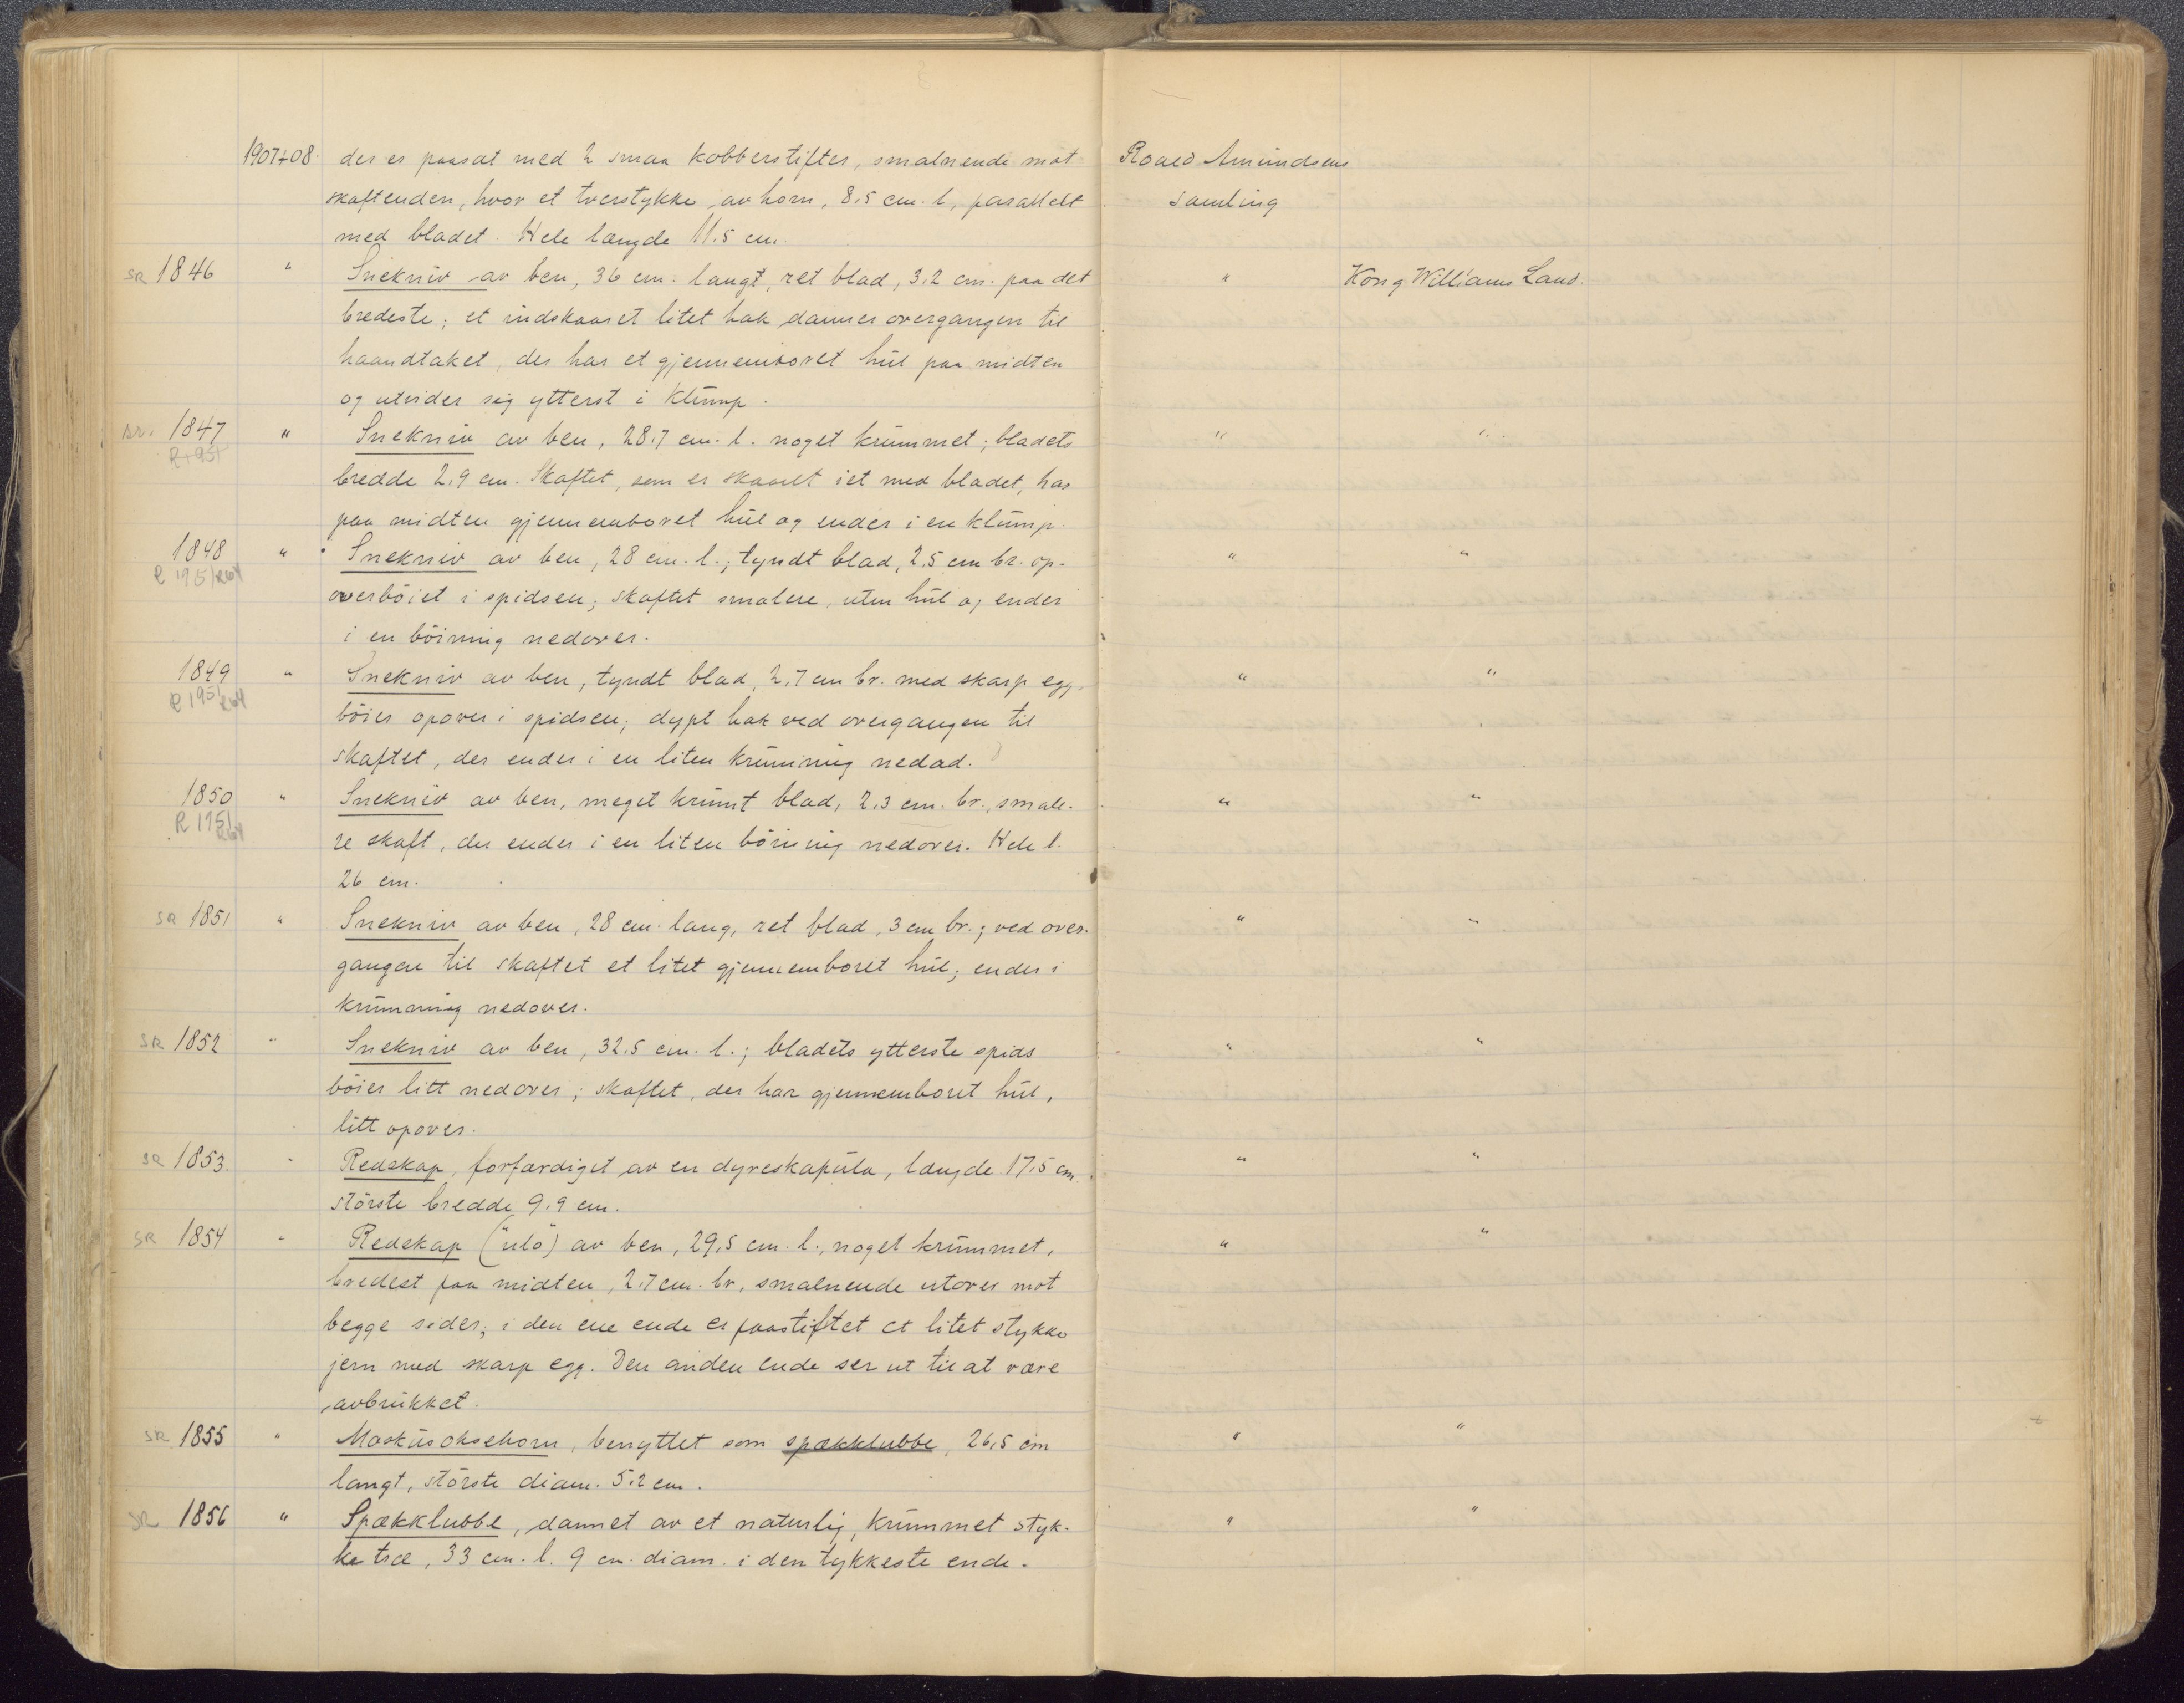 1907+08. der er paasat med 2 smaa kobberstifter, smalnende mot Roald Amundsens
skaftenden, hvor et tverstykke av horn, 8,5 cm. l, parallelt samling
med bladet. Hele længde 11.5 cm.
SR 1846 " Snekniv av ben, 36 cm. langt, ret blad, 3,2 cm. paa det " Kong Williams Land.
bredeste; et indskaaret litet hak danner overgangen til
haandtaket, der har et gjennemboret hul paa midten
og utvider sig ytterst i klump.
SR. 1847 " Snekniv av ben, 28.7 cm. l. noget krummet; bladets " "
bredde 2,9 cm. Skaftet, som er skaaret i et med bladet, har
paa midten gjennemboret hul og ender i en klump.
1848 " Snekniv av ben, 28 cm. l.; tyndt blad, 2,5 cm br. op- " "
R 1951/
overböiet i spidsen; skaftet smalere, uten hul og ender
i en böining nedover.
1849 " Snekniv av ben, tyndt blad, 2,7 cm br. med skarp egg, " "
R 1951
böier opover i spidsen; dypt hak ved overgangen til
skaftet, der ender i en liten krumning nedad.
1850 " Snekniv av ben, meget krumt blad, 2,3 cm. br., smale- " "
R 1951
re skaft, der ender i en liten böining nedover. Hele l.
26 cm.
SR 1851 " Snekniv av ben, 28 cm. lang, ret blad, 3 cm br.; ved over- " "
gangen til skaftet et litet gjennemboret hul; ender i
krumning nedover.
SR 1852 " Snekniv av ben, 32.5 cm. l.; bladets ytterste spids " "
böier litt nedover; skaftet, der har gjennemboret hul,
litt opover.
SR 1853. " Redskap, forfærdiget av en dyreskapula, længde 17.5 cm. " "
största bredde 9.9 cm.
SR 1854 " Redskap (ulo) av ben, 29,5 cm. l., noget krummet, " "
bredest paa midten, 2.7 cm. br, smalnende utover mot
begge sider; i den ene ende er paastiftet et litet stykke
jern med skarp egg. Den anden ende ser ut til at være
avbrukket.
SR 1855 " Moskusoksehorn, benyttet som spækklubbe, 26,5 cm " "
langt, störste diam. 5.2 cm.
SR 1856 " Spækklubbe, dannet av et naturlig, krummet styk- " "
ke træ, 33 cm. l. 9 cm. diam. i den tykkeste ende.